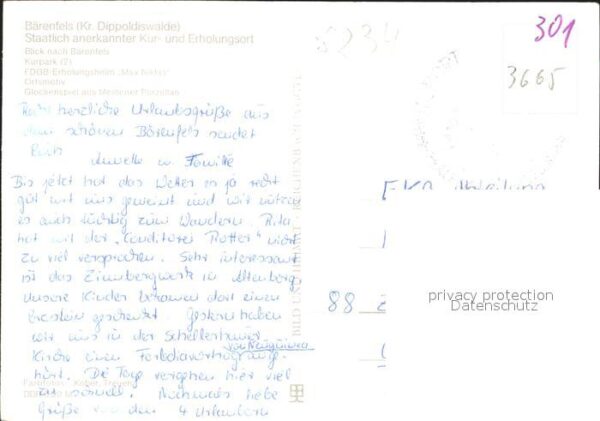 Bärenfels (Kr. Dippoldiswalde)
Staatlich anerkannter Kur- und Erholungsort
Blick nach Bärenfels
Kurpark (2)
FDGB-Erholungsheim „Max Niklas“
Ortsmotiv
Glockenspiel aus Meißener Porzellan
5234
301
3665
Recht herzliche Urlaubsgrüße aus
dem schönen Bärenfels sendet
Euch
u. Familie
Bis jetzt hat das Wetter es ja recht
gut mit uns gemeint und wir nützen
es auch tüchtig zum Wandern. Rita
hat mit der „Conditorei Rotter“ nicht
zu viel versprochen. Sehr interessant
ist das Zinnbergwerk in Altenberg
unsere Kinder bekamen dort einen
Erzstein geschenkt. Gestern haben
wir uns in der Schellerhauer
von Neuguinea
Kirche einen Farbdiavortrag ange-
hört. Die Tage vergehen hier viel
zu schnell. Nochmals liebe
Grüße von den 4 Urlaubern
88
privacy protection
Datenschutz
BILD UND HEIMAT REICHENBACH (VOGTL)